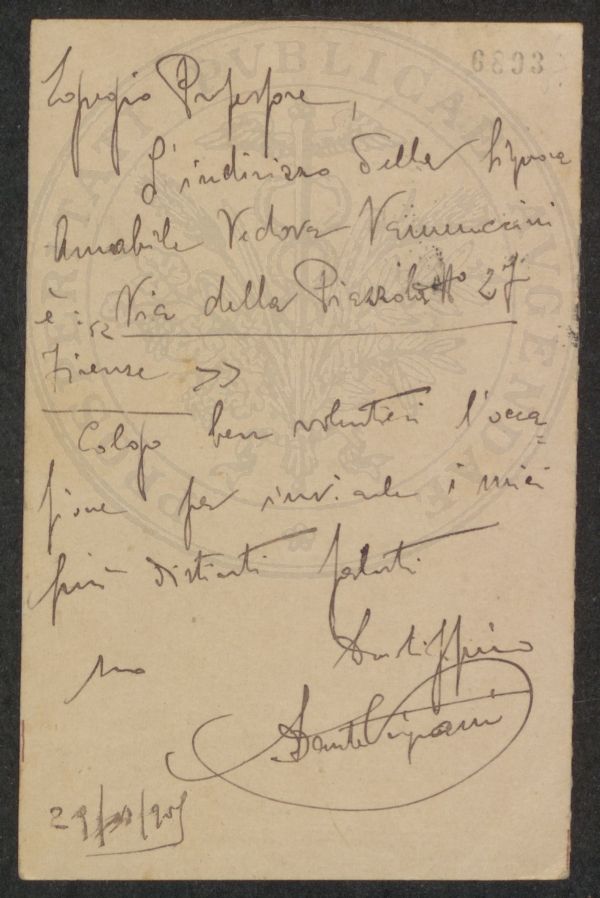 6803
Egregio Professore,
L'indirizzo della Signora
Amabile Vedova Vannuccini
è: « Via della Piazzola No 27
Firenze »
Colgo ben volentieri l'occa=
sione per inviarle i miei
più distinti saluti
suo
Dante
29/ /905